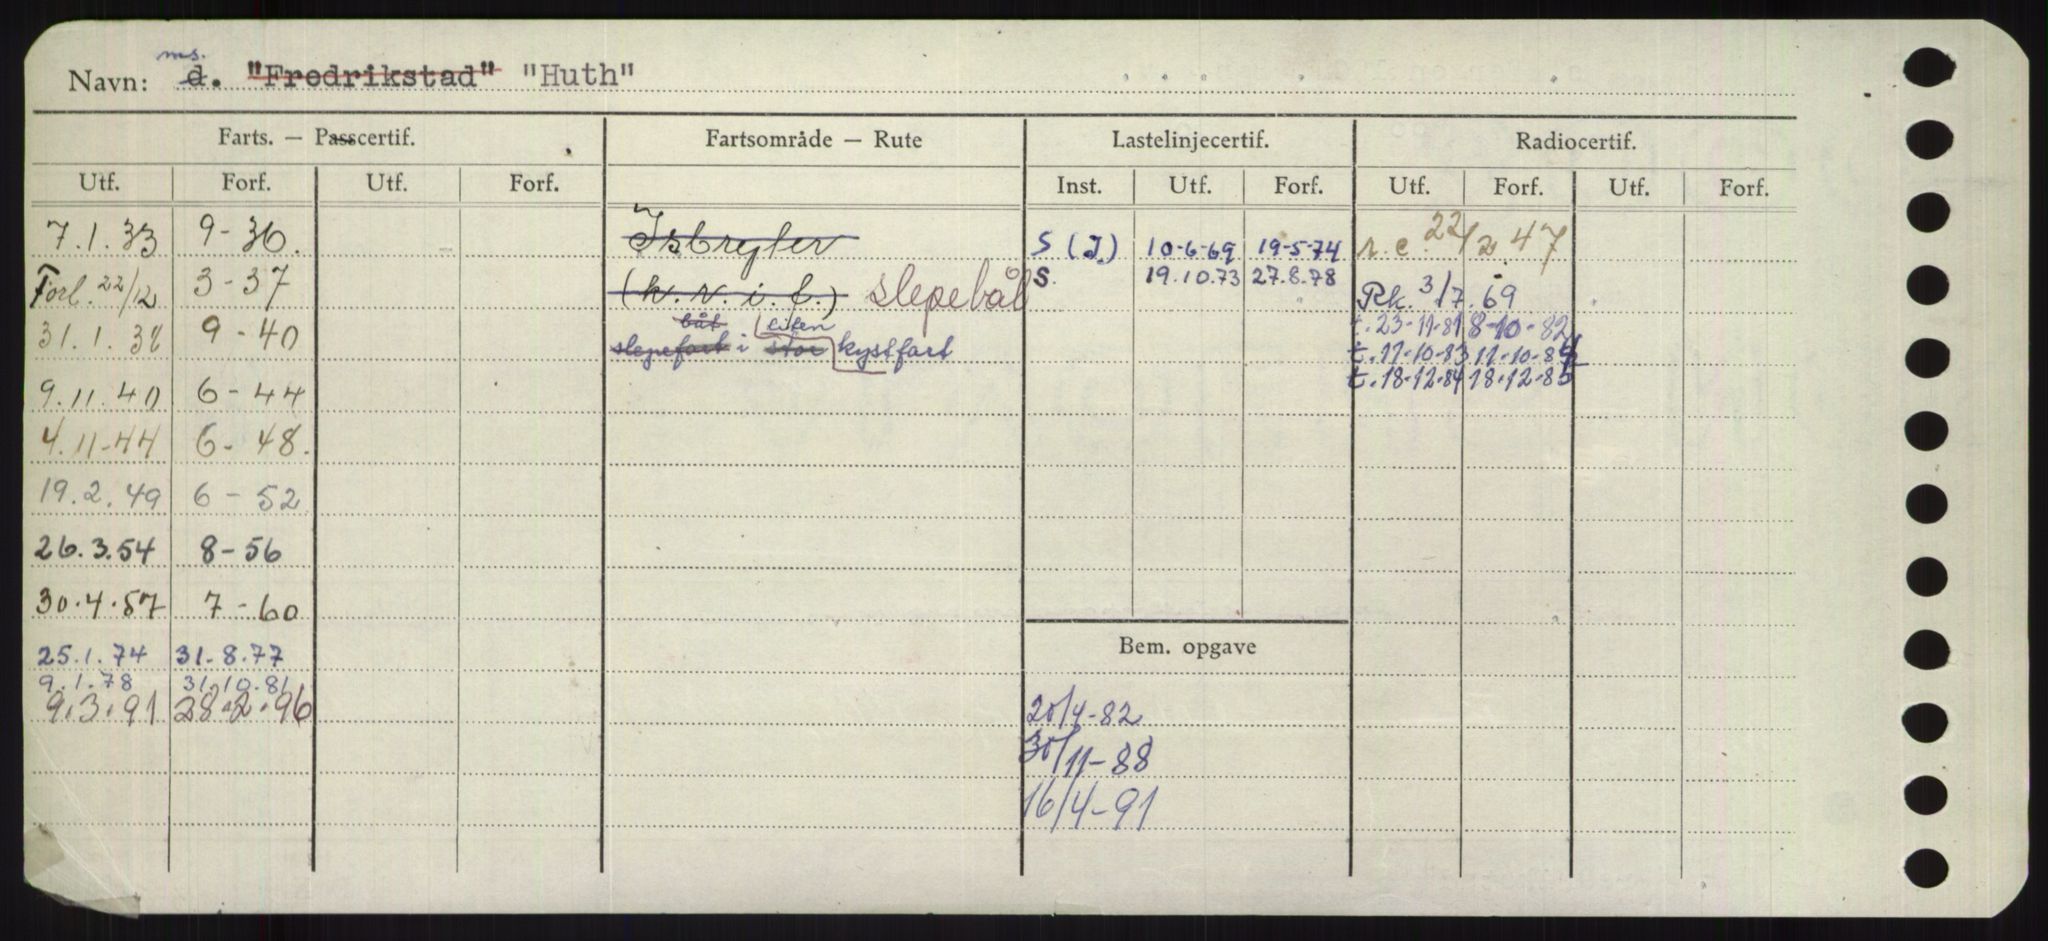 ms.
Navn: d. "Fredrikstad" "Huth"
Farts. — Passcertif. Fartsområde — Rute Lastelinjecertif. Radiocertif.
Utf. Forf. Utf. Forf. Inst. Utf. Forf. Utf. Forf. Utf. Forf.
7.1.33 9-36. Isbryter S (I) 10-6-69 19-5-74 r.c. 22/2 47
Forl. 22/12 3-37 (k.v.i.f.) slepebåt S. 19.10.73 27.8.78 Rk. 3/7.69
båt liten t. 23-11-81 8-10-82
31.1.38 9-40 slepefart i stor kystfart t. 11-10-83 11-10-84
t. 18-12-84 18-12-85
9.11.40 6-44
4.11-44 6-48.
19.2.49 6-52
26.3.54 8-56
30.4.57 7-60
Bem. opgave
25.1.74 31.8.77
9.1.78 31.10.81
9.3.91 28.2.96 20/4-82
30/11-88
16/4-91